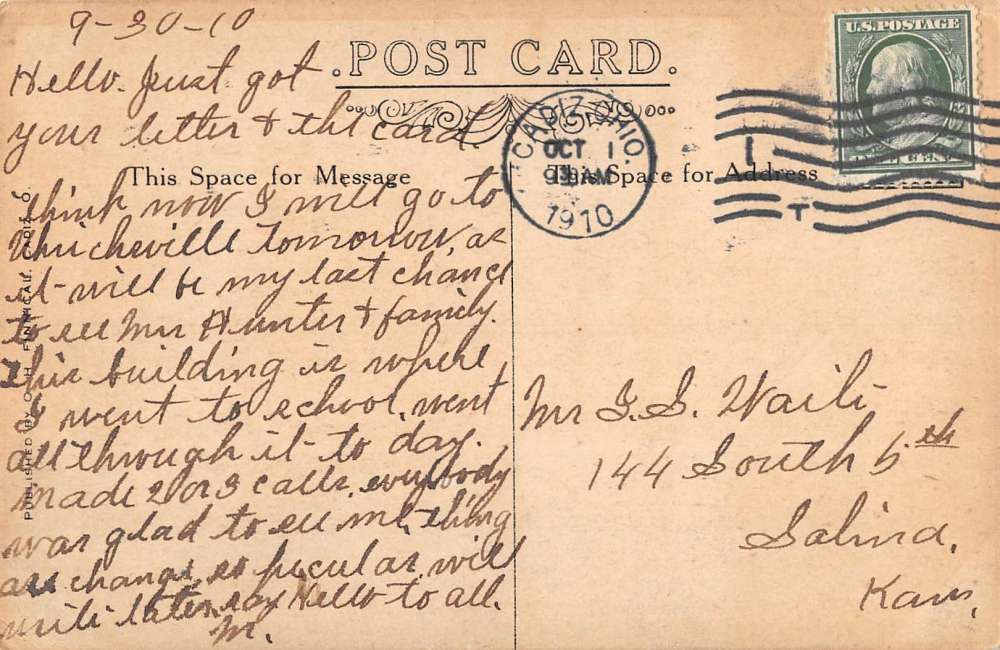 9-30-10
Hello. Just got
your letter & the card.
think now I will go to
tomorrow, as
it will be my last chance
to see Mrs Hunter & family.
This building is where
I went to school, went
all through it to day.
made 2 or 3 calls, everybody
was glad to see me, thing
are change, so peculiar. will
write later, say Hello to all.
M.
POST CARD.
This Space for Message
This Space for Address
PUBLISHED BY CADIZ, O.
CADIZ, OHIO.
OCT 1
930AM
1910
U.S. POSTAGE
ONE CENT
Mr G. S.
144 South 5th
Salina,
Kans,